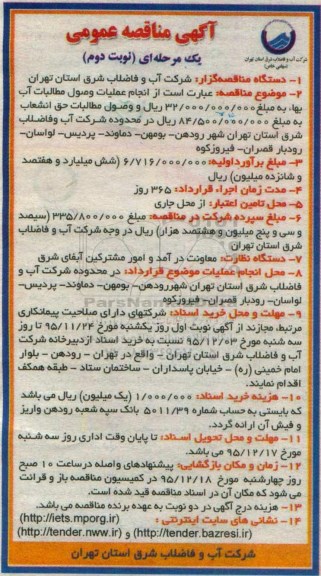 آگهی مناقصه عمومی
یک مرحله‌ای (نوبت دوم)
شرکت آب و فاضلاب شرق استان تهران
(سهامی خاص)
۱- دستگاه مناقصه‌گزار: شرکت آب و فاضلاب شرق استان تهران
۲- موضوع مناقصه: عبارت است از انجام عملیات وصول مطالبات آب
بها، به مبلغ ۳۲/۰۰۰/۰۰۰/۰۰۰ ریال و وصول مطالبات حق انشعاب
به مبلغ ۸۴/۵۰۰/۰۰۰/۰۰۰ ریال در محدوده شرکت آب وفاضلاب
شرق استان تهران شهر رودهن- بومهن- دماوند- پردیس- لواسان-
رودبار قصران- فیروزکوه
۳- مبلغ برآورداولیه: ۶/۷۱۶/۰۰۰/۰۰۰ (شش میلیارد و هفتصد
و شانزده میلیون) ریال
۴- مدت زمان اجراء قرارداد: ۳۶۵ روز
۵- محل تامین اعتبار: از محل جاری
۶- مبلغ سپرده شرکت در مناقصه: مبلغ ۳۳۵/۸۰۰/۰۰۰ (سیصد
و سی و پنج میلیون و هشتصد هزار) ریال در وجه شرکت آب و فاضلاب
شرق استان تهران
۷- دستگاه نظارت: معاونت در آمد و امور مشترکین آبفای شرق
۸- محل انجام عملیات موضوع قرارداد: در محدوده شرکت آب و
فاضلاب شرق استان تهران شهررودهن- بومهن- دماوند- پردیس-
لواسان- رودبار قصران- فیروزکوه
۹- مهلت و محل خرید اسناد: شرکتهای دارای صلاحیت پیمانکاری
مرتبط، مجازند از آگهی نوبت اول روز یکشنبه مورخ ۹۵/۱۱/۲۴ تا روز
سه شنبه مورخ ۹۵/۱۲/۰۳ نسبت به خرید اسناد ازدبیرخانه شرکت
آب و فاضلاب شرق استان تهران - واقع در تهران - رودهن - بلوار
امام خمینی (ره) - خیابان پاسداران - ساختمان ستاد - طبقه همکف
اقدام نمایند.
۱۰- هزینه خرید اسناد: ۱/۰۰۰/۰۰۰ (یک میلیون) ریال می باشد
که بایستی به حساب شماره ۵۰۱۱/۳۹ بانک سپه شعبه رودهن واریز
و فیش آن ارائه گردد.
۱۱- مهلت و محل تحویل اسناد: تا پایان وقت اداری روز سه شنبه
مورخ ۹۵/۱۲/۱۷ می باشد.
۱۲- زمان و مکان بازگشایی: پیشنهادهای واصله درساعت ۱۰ صبح
روز چهارشنبه مورخ ۹۵/۱۲/۱۸ در کمیسیون مناقصه باز و قرائت
می شود که مکان آن در اسناد مناقصه قید شده است.
۱۳- هزینه درج آگهی در دو نوبت به عهده برنده مناقصه می باشد.
۱۴- نشانی های سایت اینترنتی : (http://iets.mporg.ir)
(http://tender.bazresi.ir) و (http://tender.nww.ir)
شرکت آب و فاضلاب شرق استان تهران